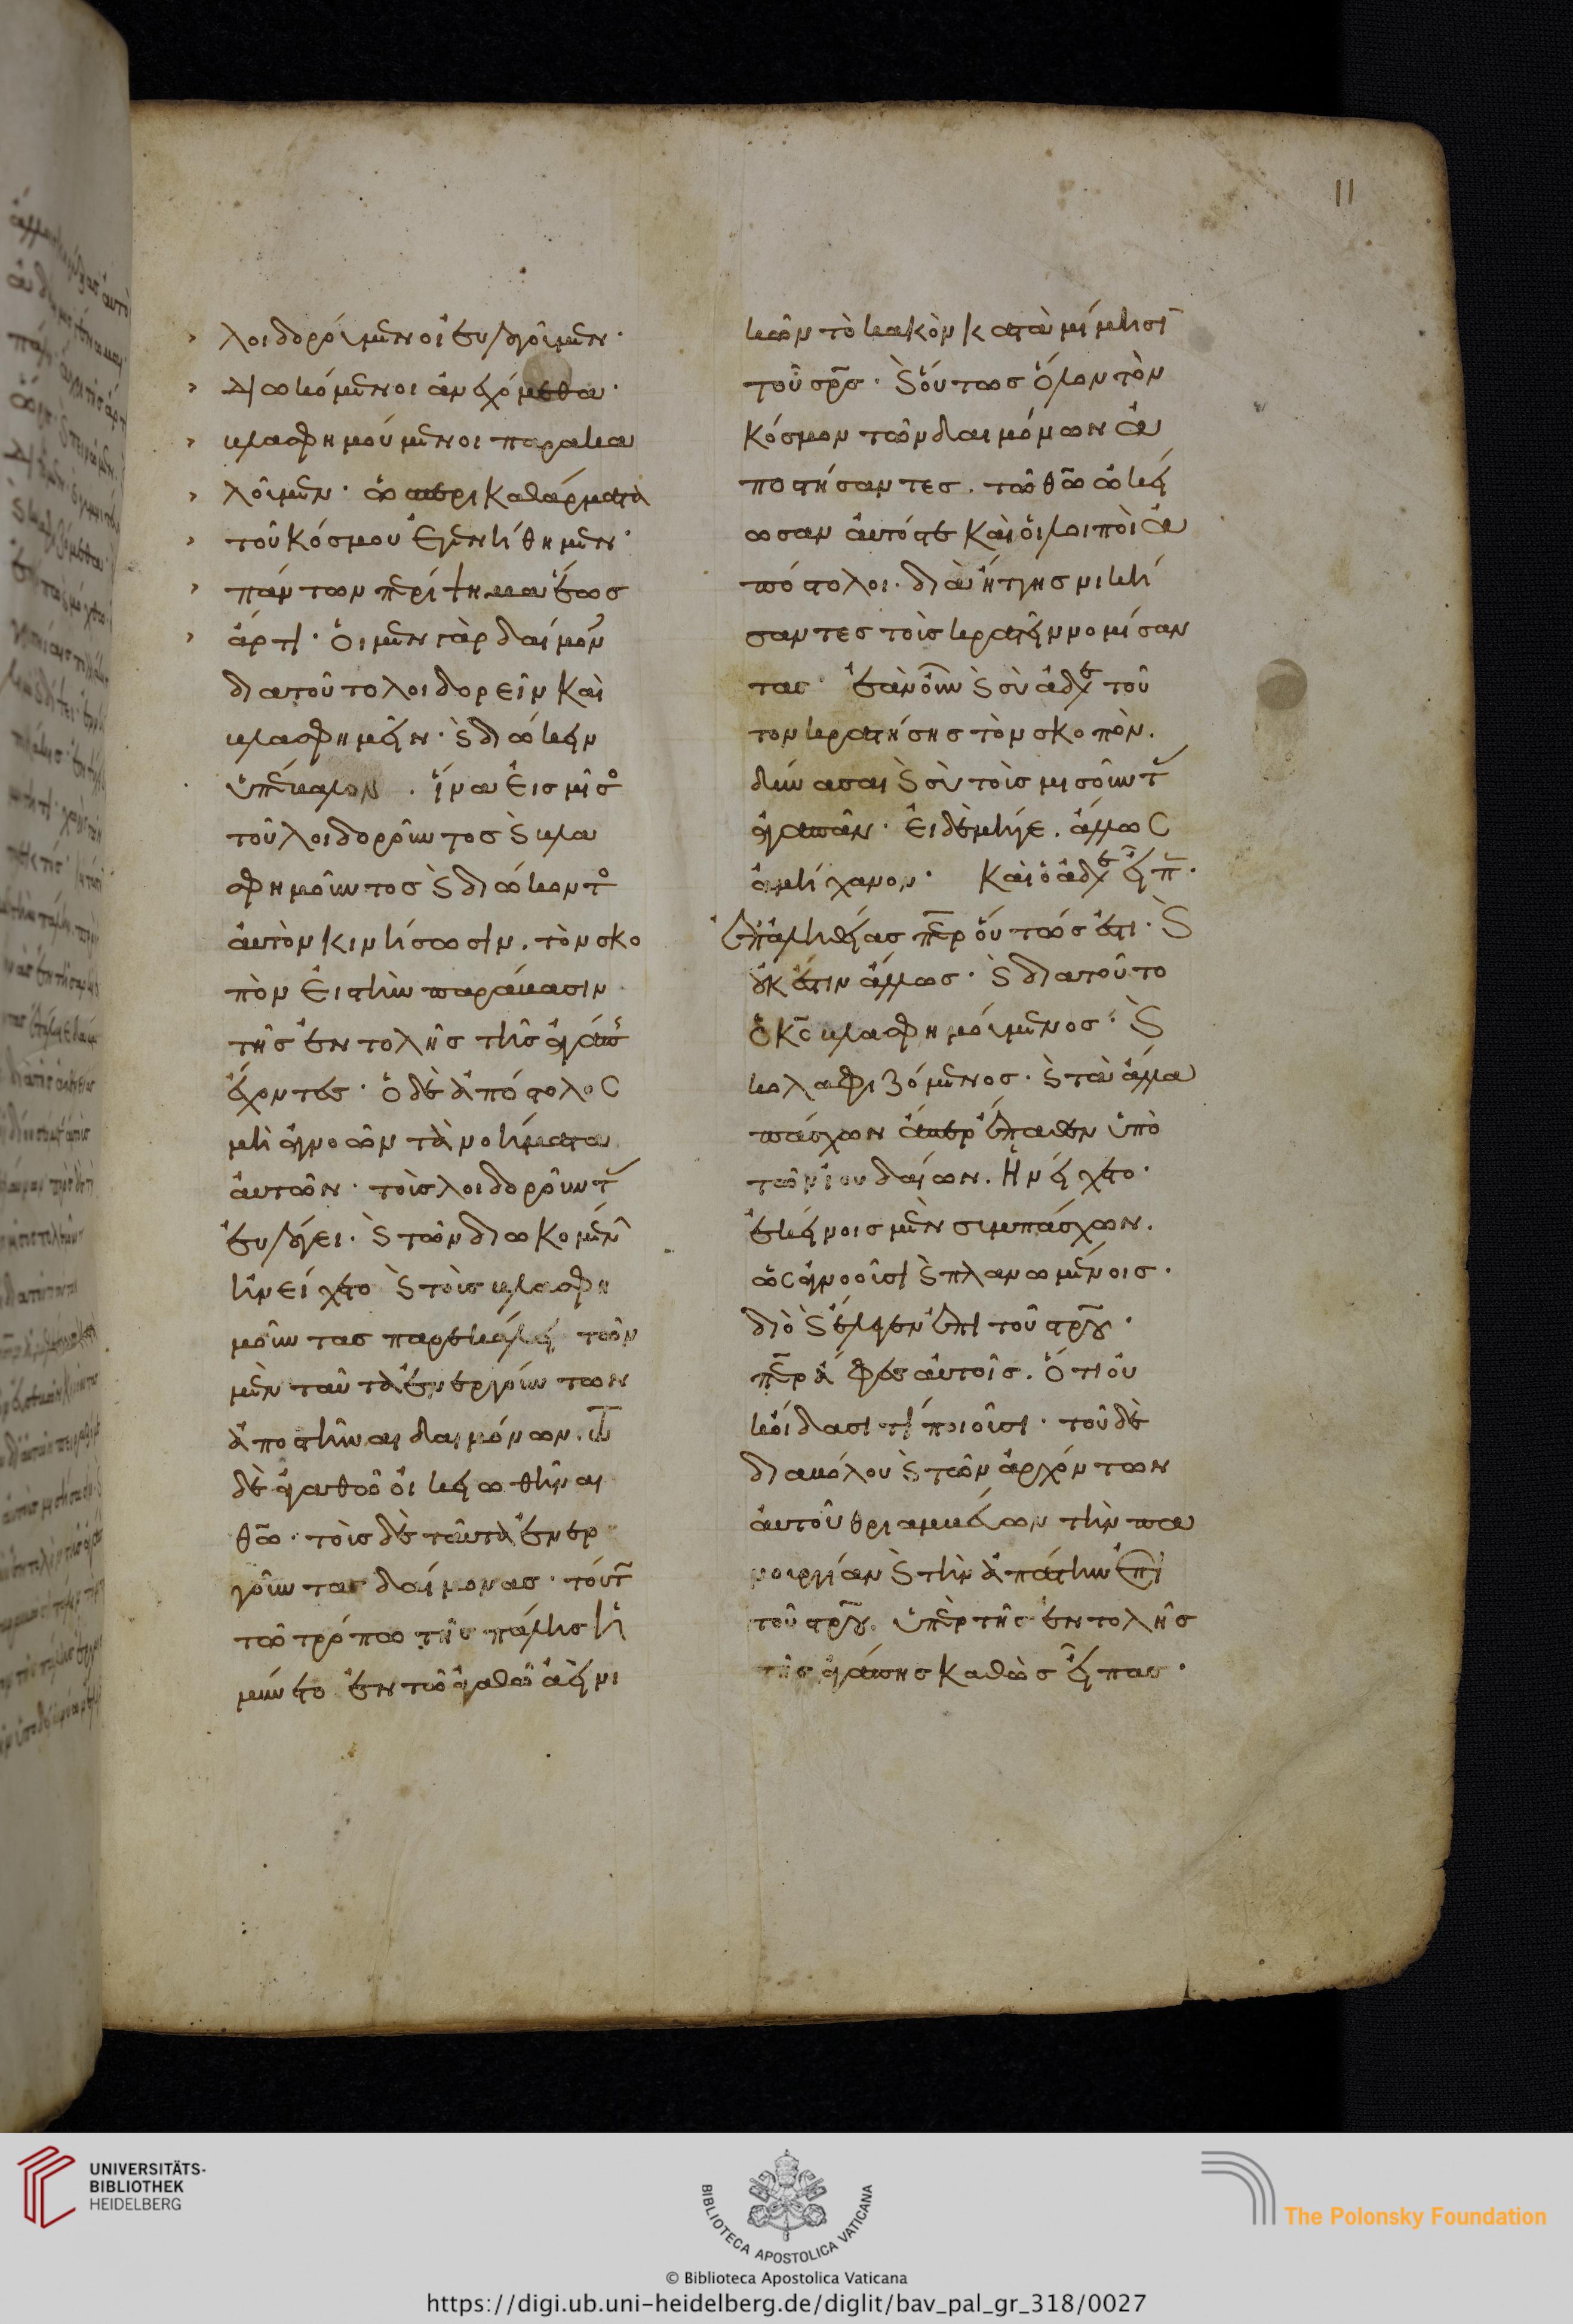 11
λοιδορούμενοι εὐλογοῦμεν·
διωκόμενοι ἀνεχόμεθα·
βλασφημούμενοι παρακα
λοῦμεν· ὡς περικαθάρματα
τοῦ κόσμου ἐγενήθημεν·
πάντων περίψημα ἕως
ἄρτι· Οἱ μὲν γὰρ δαίμον
διατοῦτο λοιδορεῖν καὶ
βλασφημεῖν· καὶ διώκειν
ὑπέβαλον. ἵνα εἰς μῖσο
τοῦ λοιδοροῦντος καὶ βλα
σφημοῦντος καὶ διώκοντο
αὐτὸν κινήσωσιν. τὸν σκο
πὸν εἰς τὴν παράβασιν
τῆς ἐντολῆς τῆς ἀγάπης
ἔχοντες· ὁ δὲ ἀπόστολος
μὴ ἀγνοῶν τὰ νοήματα
αὐτῶν· τοὺς λοιδοροῦντ
εὐλόγει· καὶ τῶν διωκομέν
ἠνείχετο καὶ τοὺς βλασφη
μοῦντας παρεκάλει τῶν
μὲν ταῦτα ἐνεργούντων
ἀποστῆναι δαιμόνων. τῶ
δὲ ἀγαθῶ οἰκειωθῆναι
θῶ· τοὺς δὲ ταῦτα ἐνερ
γοῦντας δαίμονας· τούτ
τῶ τρόπω τῆς πάλης ἠ
μύνετο ἐν τῶ ἀγαθῶ ἀεὶ νι
κῶν τὸ κακὸν κατὰ μίμησι
τοῦ σρς· καὶ οὕτως ὅλον τὸν
κόσμον τῶν δαιμόνων ἀ
ποστήσαντες. τῶ θῶ ὠκεί
ωσαν αὐτός τε καὶ οἱ λοιποὶ ἀ
πόστολοι· διὰ ἥττης νική
σαντες τοὺς κρατεῖν νομίσαν
τας· ἐὰν οὖν καὶ σὺ ἀδελφὲ τοῦ
τον κρατήσης τὸν σκοπὸν.
δύνασαι καὶ σὺ τοὺς μισοῦντ
ἀγαπᾶν· εἰ δὲ μήγε. ἄλλως
ἀμήχανον· Καὶ ὁ ἀδελφὸς εἶπ·
ἐπ ἀληθείας περ οὕτως ἔστι· καὶ
οὐκ ἔστιν ἄλλως· καὶ διατοῦτο
ὁ κς βλασφημούμενος· καὶ
κολαφιζόμενος· καὶ τὰ ἄλλα
πάσχων ἅπερ ἔπαθεν ὑπὸ
τῶν ἰουδαίων. ἠνείχετο·
ἐκείνοις μὲν συμπάσχων.
ὡς ἀγνοοῦσι καὶ πλανωμένοις·
διὸ καὶ ἔλεγεν ἐπὶ τοῦ στρου·
περ ἄφες αὐτοῖς. ὅτι οὐ
κ οἴδασι τί ποιοῦσι· τοῦ δὲ
διαβόλου καὶ τῶν ἀρχόντων
αὐτοῦ θριαμβεύων τὴν πα
νουργίαν καὶ τὴν ἀπάτην ἐπὶ
τοῦ στρου. ὑπὲρ τῆς ἐντολῆς
τῆς ἀγάπης καθὼς εἶπας·
UNIVERSITÄTS-
BIBLIOTHEK
HEIDELBERG
BIBLIOTECA APOSTOLICA VATICANA
The Polonsky Foundation
© Biblioteca Apostolica Vaticana
https://digi.ub.uni-heidelberg.de/diglit/bav_pal_gr_318/0027